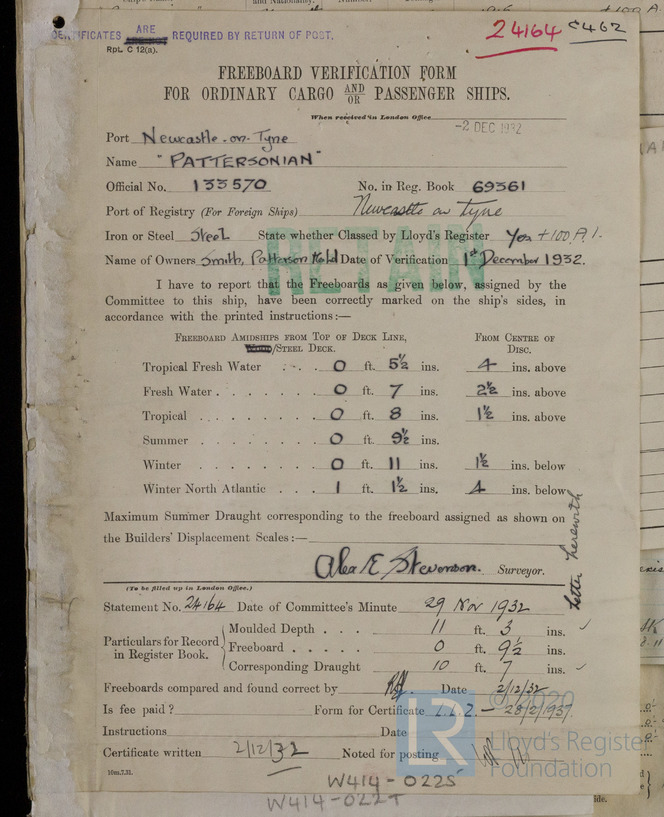 CERTIFICATES ARE REQUIRED BY RETURN OF POST.
24164 C462
RpL. C 12(a).
FREEBOARD VERIFICATION FORM
FOR ORDINARY CARGO AND/OR PASSENGER SHIPS.
When received in London Office
-2 DEC 1932
Port Newcastle-on-Tyne
Name "PATTERSONIAN"
Official No. 133570 No. in Reg. Book 69361
Port of Registry (For Foreign Ships) Newcastle on Tyne
Iron or Steel Steel State whether Classed by Lloyd's Register Yes +100.A.1.
Name of Owners Smith, Patterson Ld Date of Verification 1st December 1932.
RETAIN
I have to report that the Freeboards as given below, assigned by the
Committee to this ship, have been correctly marked on the ship's sides, in
accordance with the printed instructions:—
FREEBOARD AMIDSHIPS FROM TOP OF DECK LINE, FROM CENTRE OF
/STEEL DECK. DISC.
Tropical Fresh Water . . . 0 ft. 5½ ins. 4 ins. above
Fresh Water . . . . . . . 0 ft. 7 ins. 2½ ins. above
Tropical . . . . . . . . 0 ft. 8 ins. 1½ ins. above
Summer . . . . . . . . 0 ft. 9½ ins.
Winter . . . . . . . . 0 ft. 11 ins. 1½ ins. below
Winter North Atlantic . . . 1 ft. 1½ ins. 4 ins. below
Maximum Summer Draught corresponding to the freeboard assigned as shown on
the Builders' Displacement Scales:—
Letter herewith
Alex E. Stevenson. Surveyor.
(To be filled up in London Office.)
Statement No. 24164 Date of Committee's Minute 29 Nov 1932
Particulars for Record in Register Book.
Moulded Depth . . . 11 ft. 3 ins.
Freeboard . . . . . 0 ft. 9½ ins.
Corresponding Draught 10 ft. 7 ins.
Freeboards compared and found correct by Date 2/12/32
Is fee paid? Form for Certificate L.L.2. - 28/2/1937.
Instructions Date
Certificate written 2/12/32 Noted for posting
10m.7.31.
© 2020
LR
Lloyd's Register
Foundation
W414-0225
W414-0227